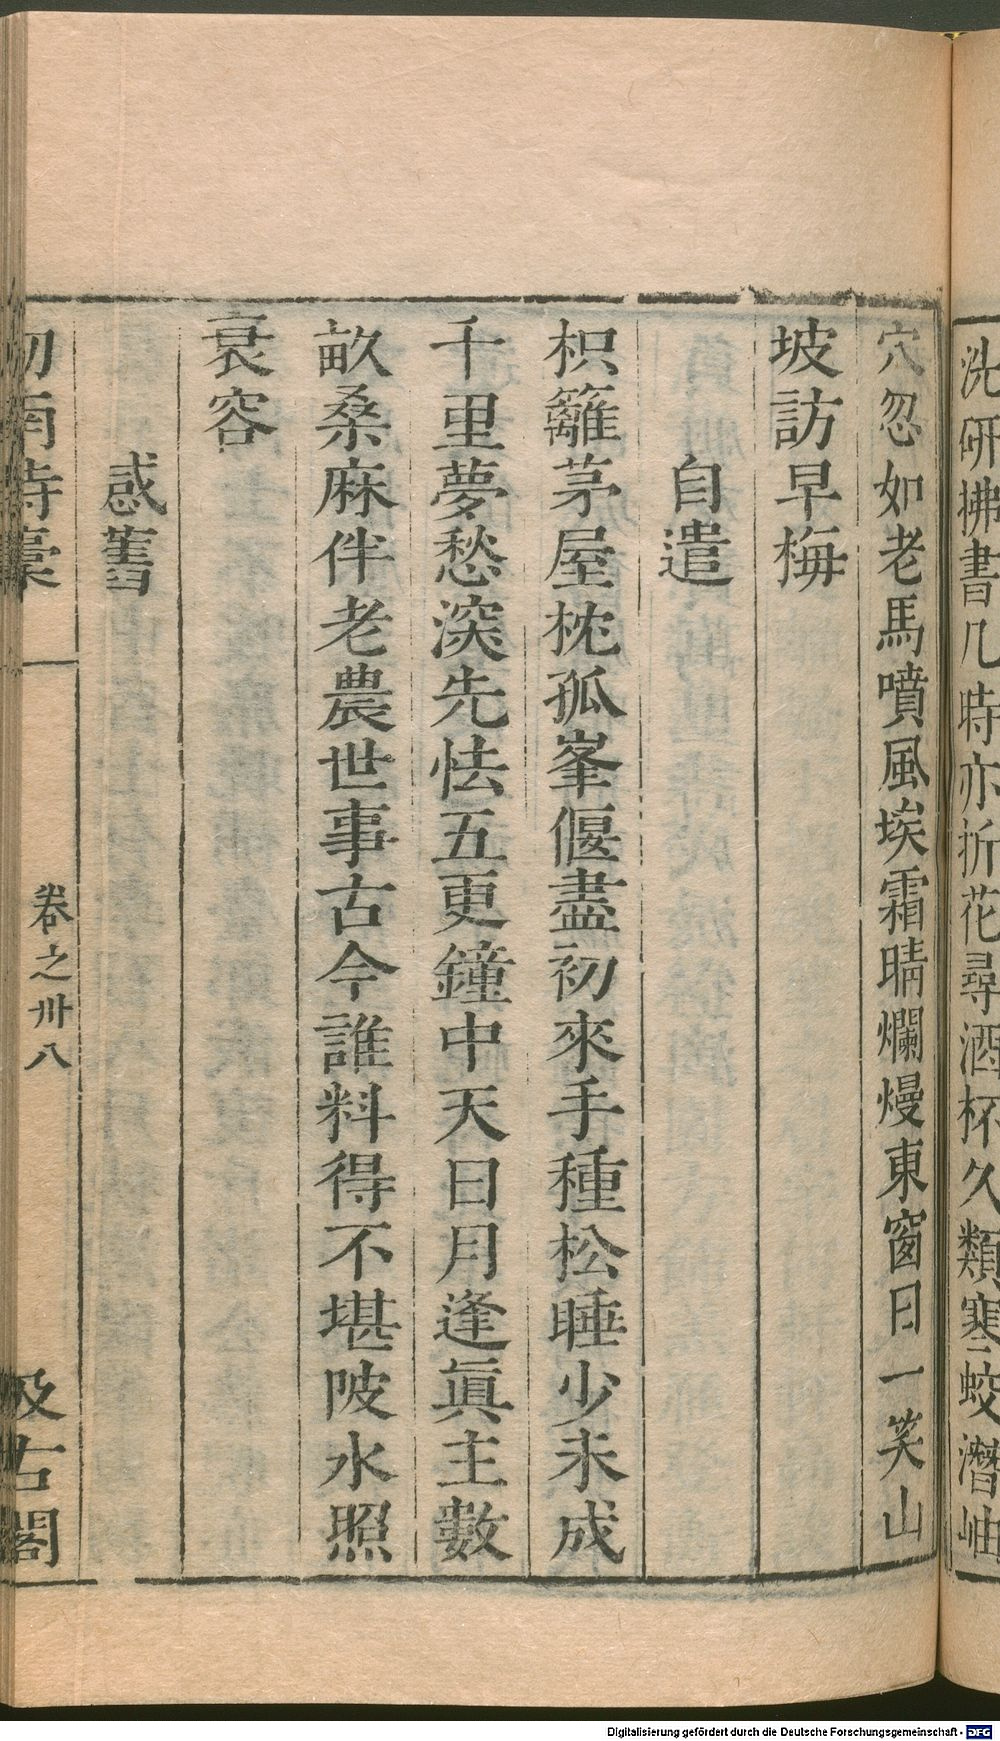 洗研拂書几時亦折花尋酒杯久類寒蛟潛岫
穴忽如老馬噴風埃霜晴爛熳東窗日一笑山
坡訪早梅
自遣
枳籬茅屋枕孤峯偃盡初來手種松睡少未成
千里夢愁深先怯五更鐘中天日月逢眞主數
畝桑麻伴老農世事古今誰料得不堪陂水照
衰容
感舊
劒南詩稾
卷之卅八
汲古閣
Digitalisierung gefördert durch die Deutsche Forschungsgemeinschaft - DFG